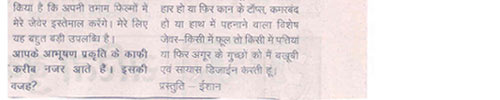 किया है कि अपनी तमाम फिल्मों में
मेरे जेवर इस्तेमाल करेंगे। मेरे लिए
यह बहुत बड़ी उपलब्धि है।
आपके आभूषण प्रकृति के काफी
करीब नजर आते हैं। इसकी
वजह?
हार हो या फिर कान के टॉप्स, कमरबंद
हो या हाथ में पहनाने वाला विशेष
जेवर–किसी में फूल तो किसी में पत्तियां
या फिर अंगूर के गुच्छों को मैं बखूबी
एवं सायास डिजाईन करती हूं।
प्रस्तुति – ईशान